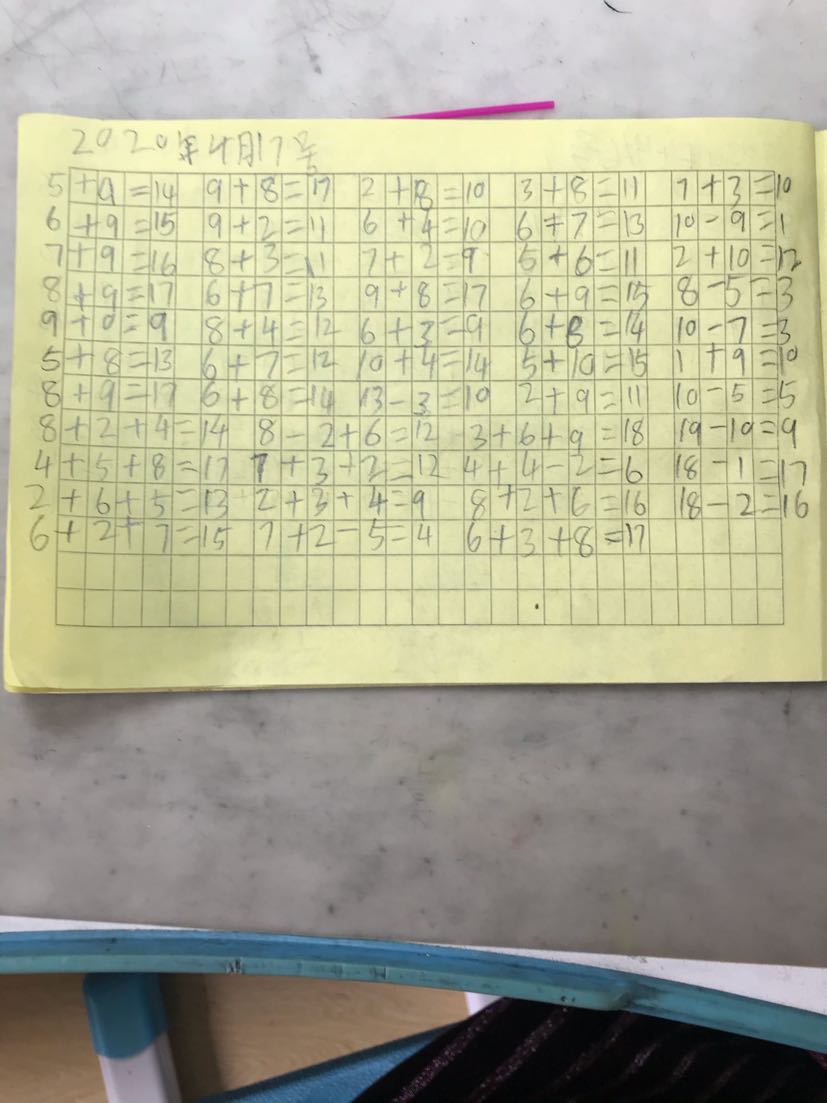 2020年4月17号
5+9=14 9+8=17 2+8=10 3+8=11 7+3=10
6+9=15 9+2=11 6+4=10 6+7=13 10-9=1
7+9=16 8+3=11 7+2=9 5+6=11 2+10=12
8+9=17 6+7=13 9+8=17 6+9=15 8-5=3
9+0=9 8+4=12 6+3=9 6+8=14 10-7=3
5+8=13 6+7=12 10+4=14 5+10=15 1+9=10
8+9=17 6+8=14 13-3=10 2+9=11 10-5=5
8+2+4=14 8-2+6=12 3+6+9=18 19-10=9
4+5+8=17 7+3+2=12 4+4-2=6 18-1=17
2+6+5=13 2+3+4=9 8+2+6=16 18-2=16
6+2+7=15 7+2-5=4 6+3+8=17